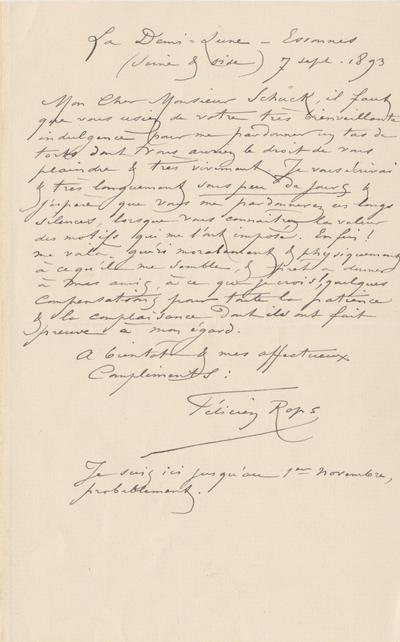 La Demi-Lune – Essonnes
(Seine & Oise) 7 sept. 1893
Mon Cher Monsieur Schück, il faut
que vous usiez de votre très bienveillante
indulgence pour me pardonner un tas de
torts dont vous auriez le droit de vous
plaindre & très vivement. Je vous écrirai
& très longuement sous peu de jours &
j'espère que vous me pardonnerez ces longs
silences, lorsque vous connaîtrez la valeur
des motifs qui me l'ont imposé. Enfin!
me voilà, guéri moralement & physiquement
à ce qu'il me semble, & prêt à donner
à mes amis, à ce que je crois, quelques
compensations pour toute la patience
& la complaisance dont ils ont fait
preuve à mon égard.
A bientôt & mes affectueux
Compliments:
Félicien Rops
Je suis ici jusqu'au 1er novembre,
probablement.